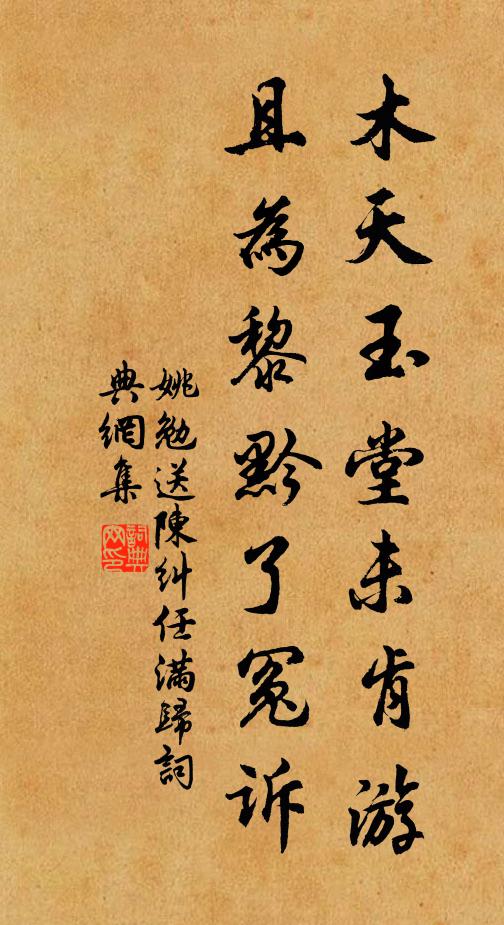 木天玉堂未肯游
且為黎黔了冤訴
姚勉送陳糾任滿歸詞
典網集
詞典网印